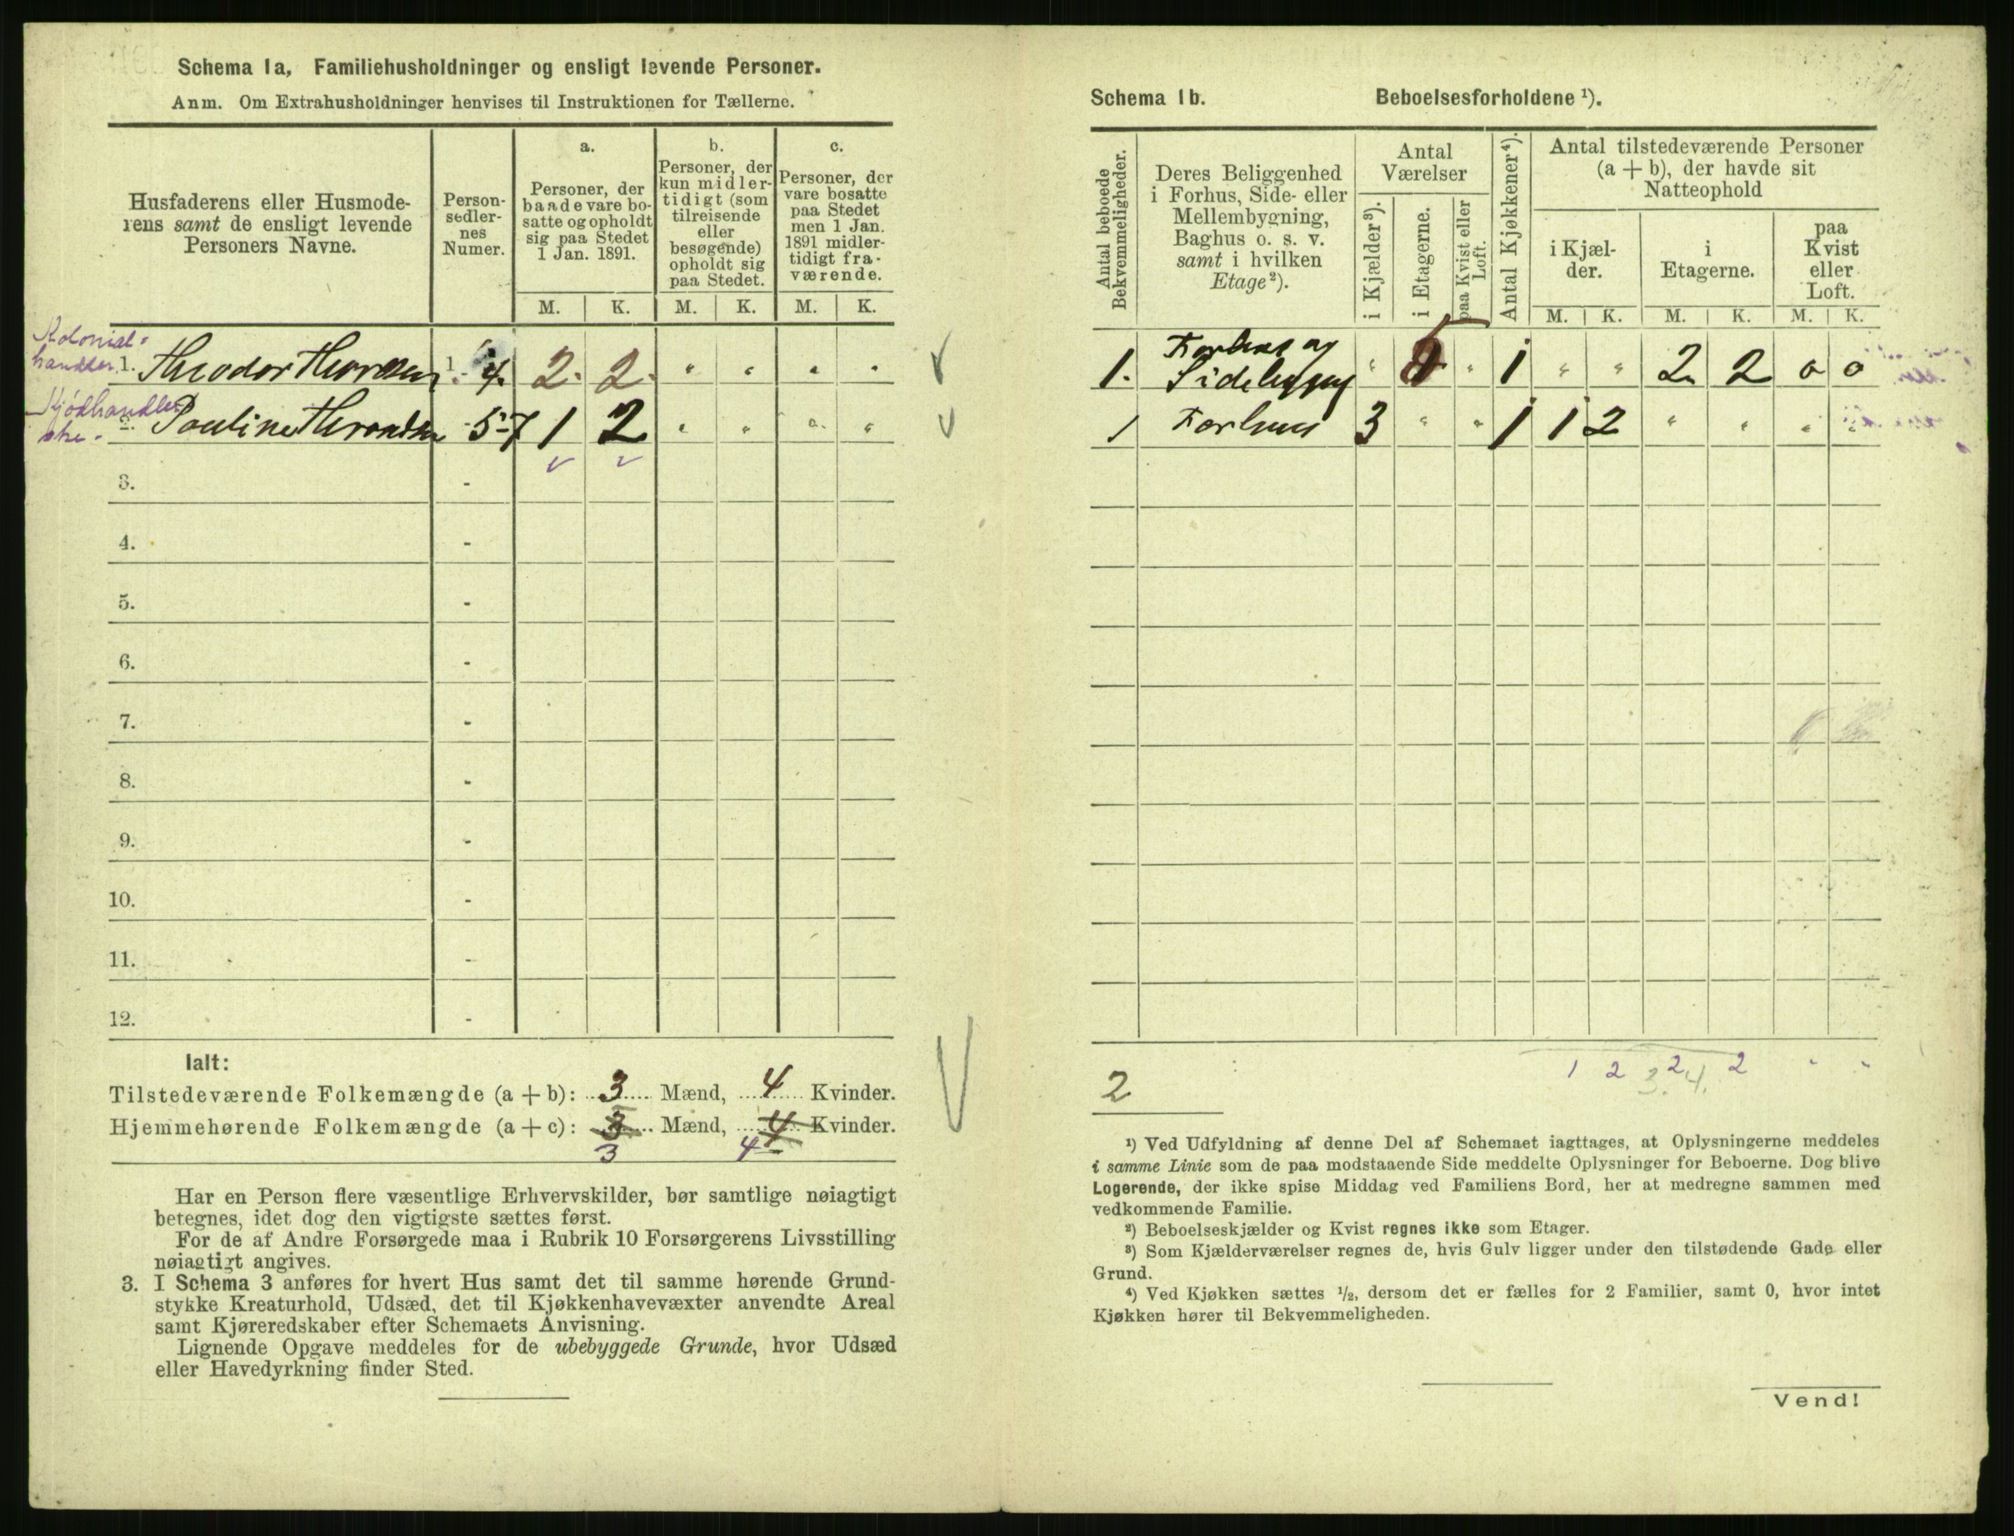 Schema 1a, Familiehusholdninger og ensligt levende Personer.
Anm. Om Extrahusholdninger henvises til Instruktionen for Tællerne.
Husfaderens eller Husmode-
rens samt de ensligt levende
Personers Navne.
Person-
sedler-
nes
Numer.
a.
Personer, der
baade vare bo-
satte og opholdt
sig paa Stedet
1 Jan. 1891.
b.
Personer, der
kun midler-
tidigt (som
tilreisende
eller
besøgende)
opholdt sig
paa Stedet.
c.
Personer, der
vare bosatte
paa Stedet
men 1 Jan.
1891 midler-
tidigt fra-
værende.
M. K. M. K. M. K.
Kolonial-
handler 1. Theodor 1 - 4. 2. 2. " " " "
Kjødhandler
ske. 2. Pauline 5-7 1 2 " " " "
3. -
4. -
5. -
6. -
7. -
8. -
9. -
10. -
11. -
12. -
Ialt:
Tilstedeværende Folkemængde (a + b): 3 Mænd, 4 Kvinder.
Hjemmehørende Folkemængde (a + c): 3 Mænd, 4 Kvinder.
3 4
Har en Person flere væsentlige Erhvervskilder, bør samtlige nøiagtigt
betegnes, idet dog den vigtigste sættes først.
For de af Andre Forsørgede maa i Rubrik 10 Forsørgerens Livsstilling
nøiagtigt angives.
3. I Schema 3 anføres for hvert Hus samt det til samme hørende Grund-
stykke Kreaturhold, Udsæd, det til Kjøkkenhavevæxter anvendte Areal
samt Kjøreredskaber efter Schemaets Anvisning.
Lignende Opgave meddeles for de ubebyggede Grunde, hvor Udsæd
eller Havedyrkning finder Sted.
Schema 1b. Beboelsesforholdene ¹).
Antal beboede
Bekvemmeligheder.
Deres Beliggenhed
i Forhus, Side- eller
Mellembygning,
Baghus o. s. v.
samt i hvilken
Etage ²).
Antal
Værelser
i Kjælder ³).
i Etagerne.
paa Kvist eller
Loft.
Antal Kjøkkener ⁴).
Antal tilstedeværende Personer
(a + b), der havde sit
Natteophold
i Kjæl-
der.
i
Etagerne.
paa
Kvist
eller
Loft.
M. K. M. K. M. K.
1. Forhus og
Sidebygning " 5 " 1 " " 2 2 0 0
1 Forhus 3 " " 1 1 2 " " " "
1 2 2 2 " "
3. 4.
2
¹) Ved Udfyldning af denne Del af Schemaet iagttages, at Oplysningerne meddeles
i samme Linie som de paa modstaaende Side meddelte Oplysninger for Beboerne. Dog blive
Logerende, der ikke spise Middag ved Familiens Bord, her at medregne sammen med
vedkommende Familie.
²) Beboelseskjælder og Kvist regnes ikke som Etager.
³) Som Kjælderværelser regnes de, hvis Gulv ligger under den tilstødende Gade eller
Grund.
⁴) Ved Kjøkken sættes ½, dersom det er fælles for 2 Familier, samt 0, hvor intet
Kjøkken hører til Bekvemmeligheden.
Vend!